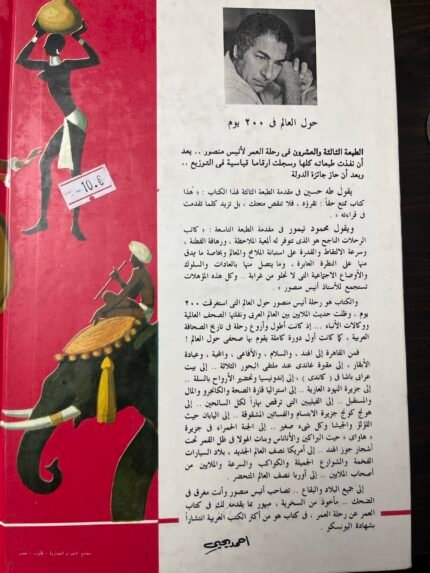 حول العالم فى ٢٠٠ يوم
الطبعة الثالثة والعشرون فى رحلة العمر لأنيس منصور .. بعد
أن نفذت طبعاته كلها وسجلت ارقاما قياسية فى التوزيع ..
وبعد أن حاز جائزة الدولة
يقول طه حسين فى مقدمة الطبعة الثالثة لهذا الكتاب : « هذا
كتاب ممتع حقاً : تقرؤه ، فلا تنقص متعتك ، بل تزيد كلما تقدمت
فى قراءته » .
ويقول محمود تيمور فى مقدمة الطبعة التاسعة : « كاتب
الرحلات الناجح هو الذى تتوفر له ألمعية الملاحظة ، ورهافة الفطنة ،
وسرعة الالتقاط والقدرة على استبانة الملامح والمعالم وبخاصة ما يدق
منها على النظرة العابرة ، وما يتصل منها بالعادات والسلوك
والأوضاع الاجتماعية التى لا تخلو من غرابة .. وكل هذه المؤهلات
تستجمع للأستاذ أنيس منصور » .
والكتاب هو رحلة أنيس منصور حول العالم التى استغرقت ٢٠٠
يوم ، وظلت حديث الملايين بين العالم العربى ونقلتها الصحف العالمية
ووكالات الأنباء ... إذ كانت أطول وأروع رحلة فى تاريخ الصحافة
العربية ، كما كانت أول دورة كاملة يقوم بها صحفى حول العالم !
فمن القاهرة إلى الهند ، والسلام ، والأفاعى ، والمحبة ، وعبادة
الأبقار ، إلى مقبرة غاندى عند ملتقى البحور الثلاثة .. إلى بيت
عرابى باشا فى ( كاندى ) ، إلى إندونيسيا وتحضير الأرواح بالسلة ..
إلى جزيرة النهود العارية .. إلى استراليا قارة الصحة والكانجرو والمال
والمستقبل .. إلى الفيليبين التى ترقص نهاراً لكل السائحين .. إلى
هونج كونج جزيرة الابتسام والفساتين المشقوقة .. إلى اليابان حيث
اللؤلؤ والجيشا وكل شىء صغير .. إلى الجنة الحمراء فى جزيرة
« هاواى » حيث البراكين والأناناس وبنات الهولا فى ظل القمر تحت
أشجار جوز الهند .. إلى أمريكا نصف العالم الجديد ، بلاد السيارات
الفخمة والشوارع الجميلة والكواكب والسرعة والملايين من
أصحاب الملايين .. إلى أوربا نصف العالم المتحضر .
إلى جميع البلاد والبقاع .. تصاحب أنيس منصور وأنت مغرق فى
الضحك .. مأخوذ من السخرية ، مبهور بما يقدمه لك فى كتاب
العمر عن رحلة العمر ، فى كتاب هو من أكثر الكتب العربية انتشاراً
بشهادة اليونسكو .
احمد يحيى
مطابع الاهرام التجارية - قليوب - مصر